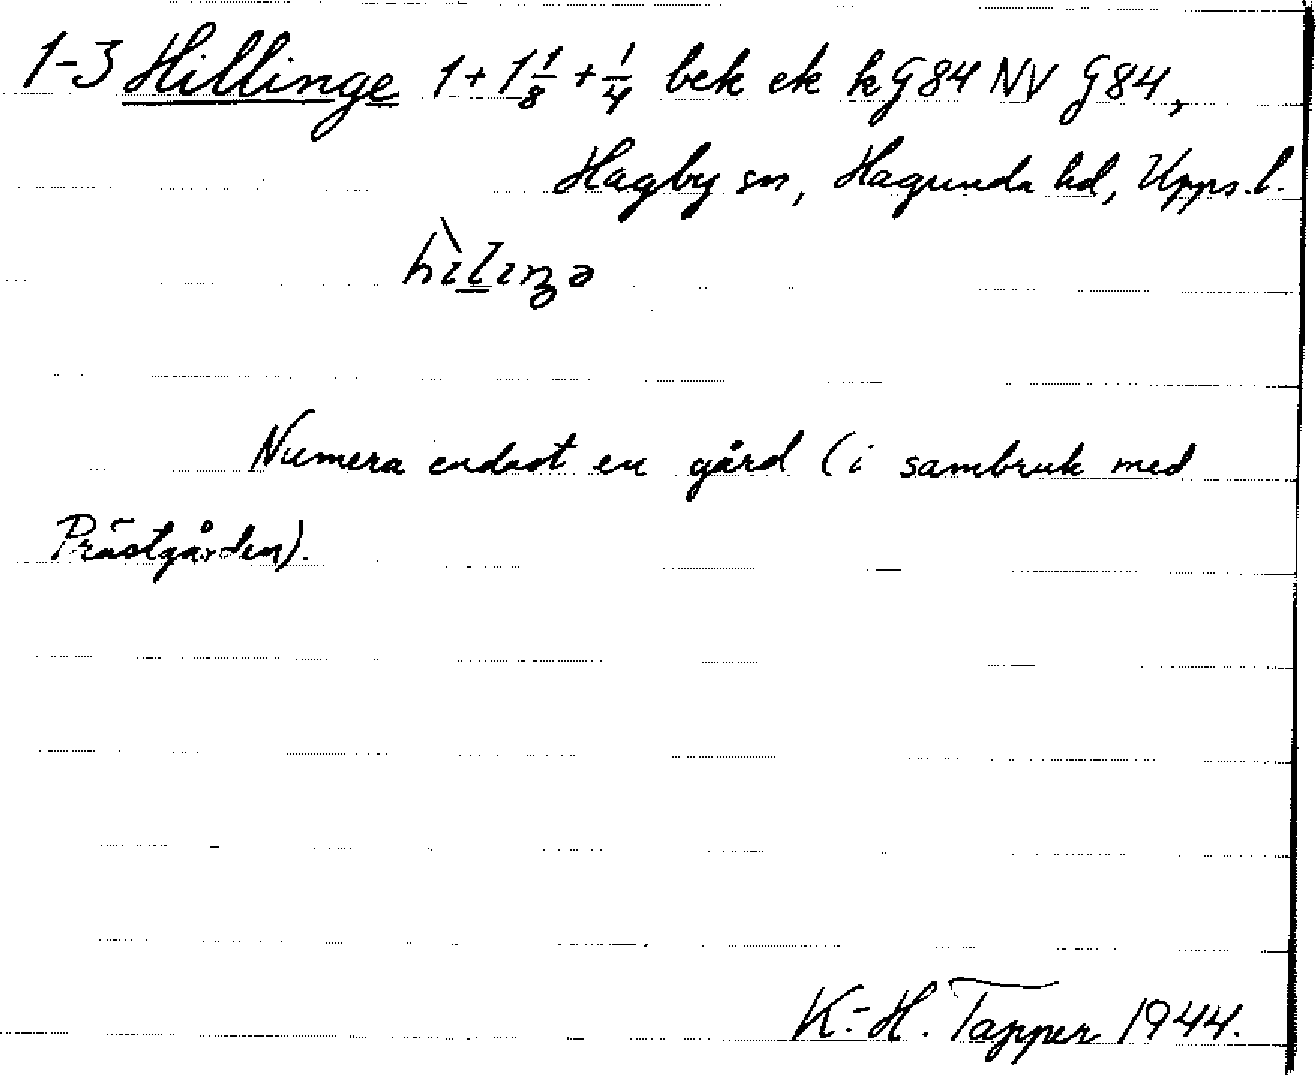 1-3 Hillinge 1 + 1 1/8 + 1/4 bek ek k G84 NV G84,
Hagby sn, Hagunda hd, Upps. l.
hìlıŋə
Numera endast en gård (i sambruk med
Prästgården).
K.-H. Tapper 1944.